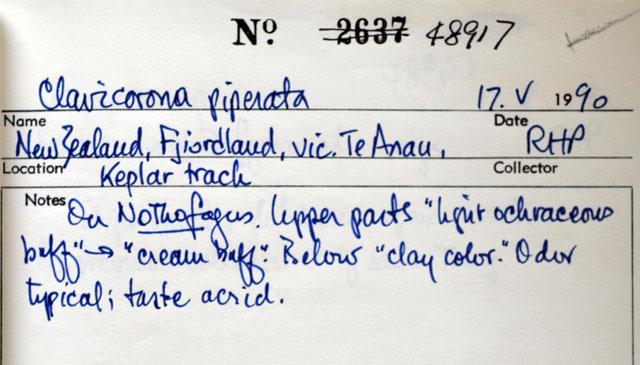 Nº 2637 48917
Clavicorona piperata 17. V 1990
Name Date
New Zealand, Fjiordland, vic. Te Anau, RHP
Location Collector
Keplar track
Notes On Nothofagus. Upper parts "light ochraceous
buff" → "cream buff". Below "clay color." Odor
typical; taste acrid.